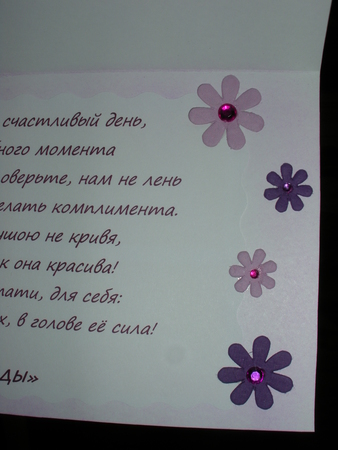 счастливый день,
ного момента
оверьте, нам не лень
елать комплимента.
шою не кривя,
к она красива!
тати, для себя:
х, в голове её сила!
ды»